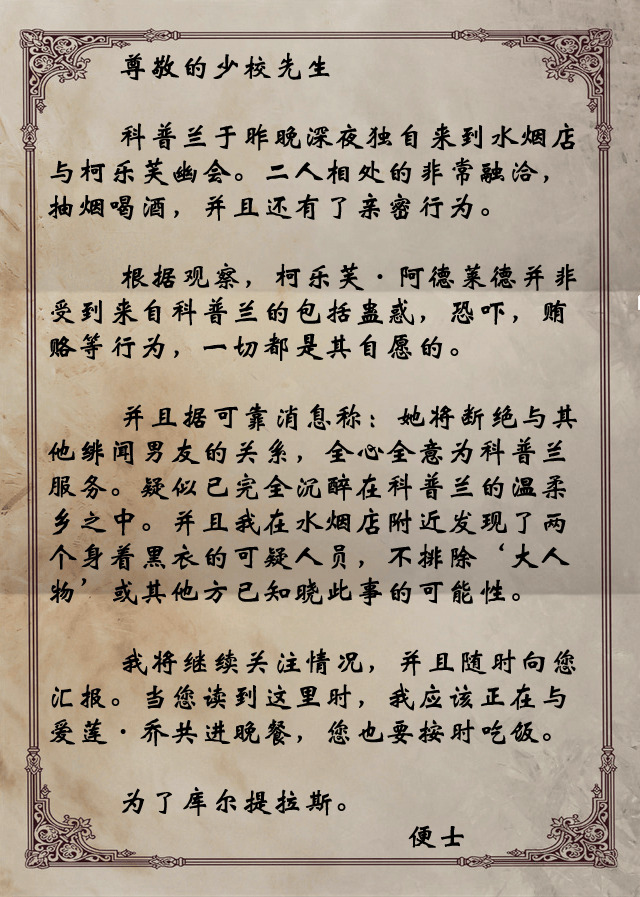 尊敬的少校先生
科普兰于昨晚深夜独自来到水烟店
与柯乐芙幽会。二人相处的非常融洽，
抽烟喝酒，并且还有了亲密行为。
根据观察，柯乐芙·阿德莱德并非
受到来自科普兰的包括蛊惑，恐吓，贿
赂等行为，一切都是其自愿的。
并且据可靠消息称：她将断绝与其
他绯闻男友的关系，全心全意为科普兰
服务。疑似已完全沉醉在科普兰的温柔
乡之中。并且我在水烟店附近发现了两
个身着黑衣的可疑人员，不排除‘大人
物’或其他方已知晓此事的可能性。
我将继续关注情况，并且随时向您
汇报。当您读到这里时，我应该正在与
爱莲·乔共进晚餐，您也要按时吃饭。
为了库尔提拉斯。
便士